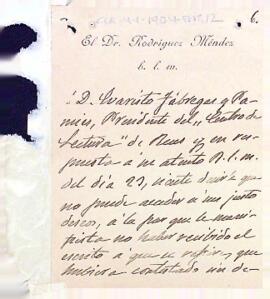 6.
El Dr. Rodríguez Méndez
b. l. m.
á D. Evaristo Fábregas y Pa-
miés, Presidente del "Centro de
Lectura" de Reus y en res-
puesta a su atento B. l. m.
del día 23, siente decirle que
no puede acceder á sus justos
deseos, á la par que le mani-
fiesta no haber recibido el
escrito á que se refiere, que
hubiera contestado sin de-